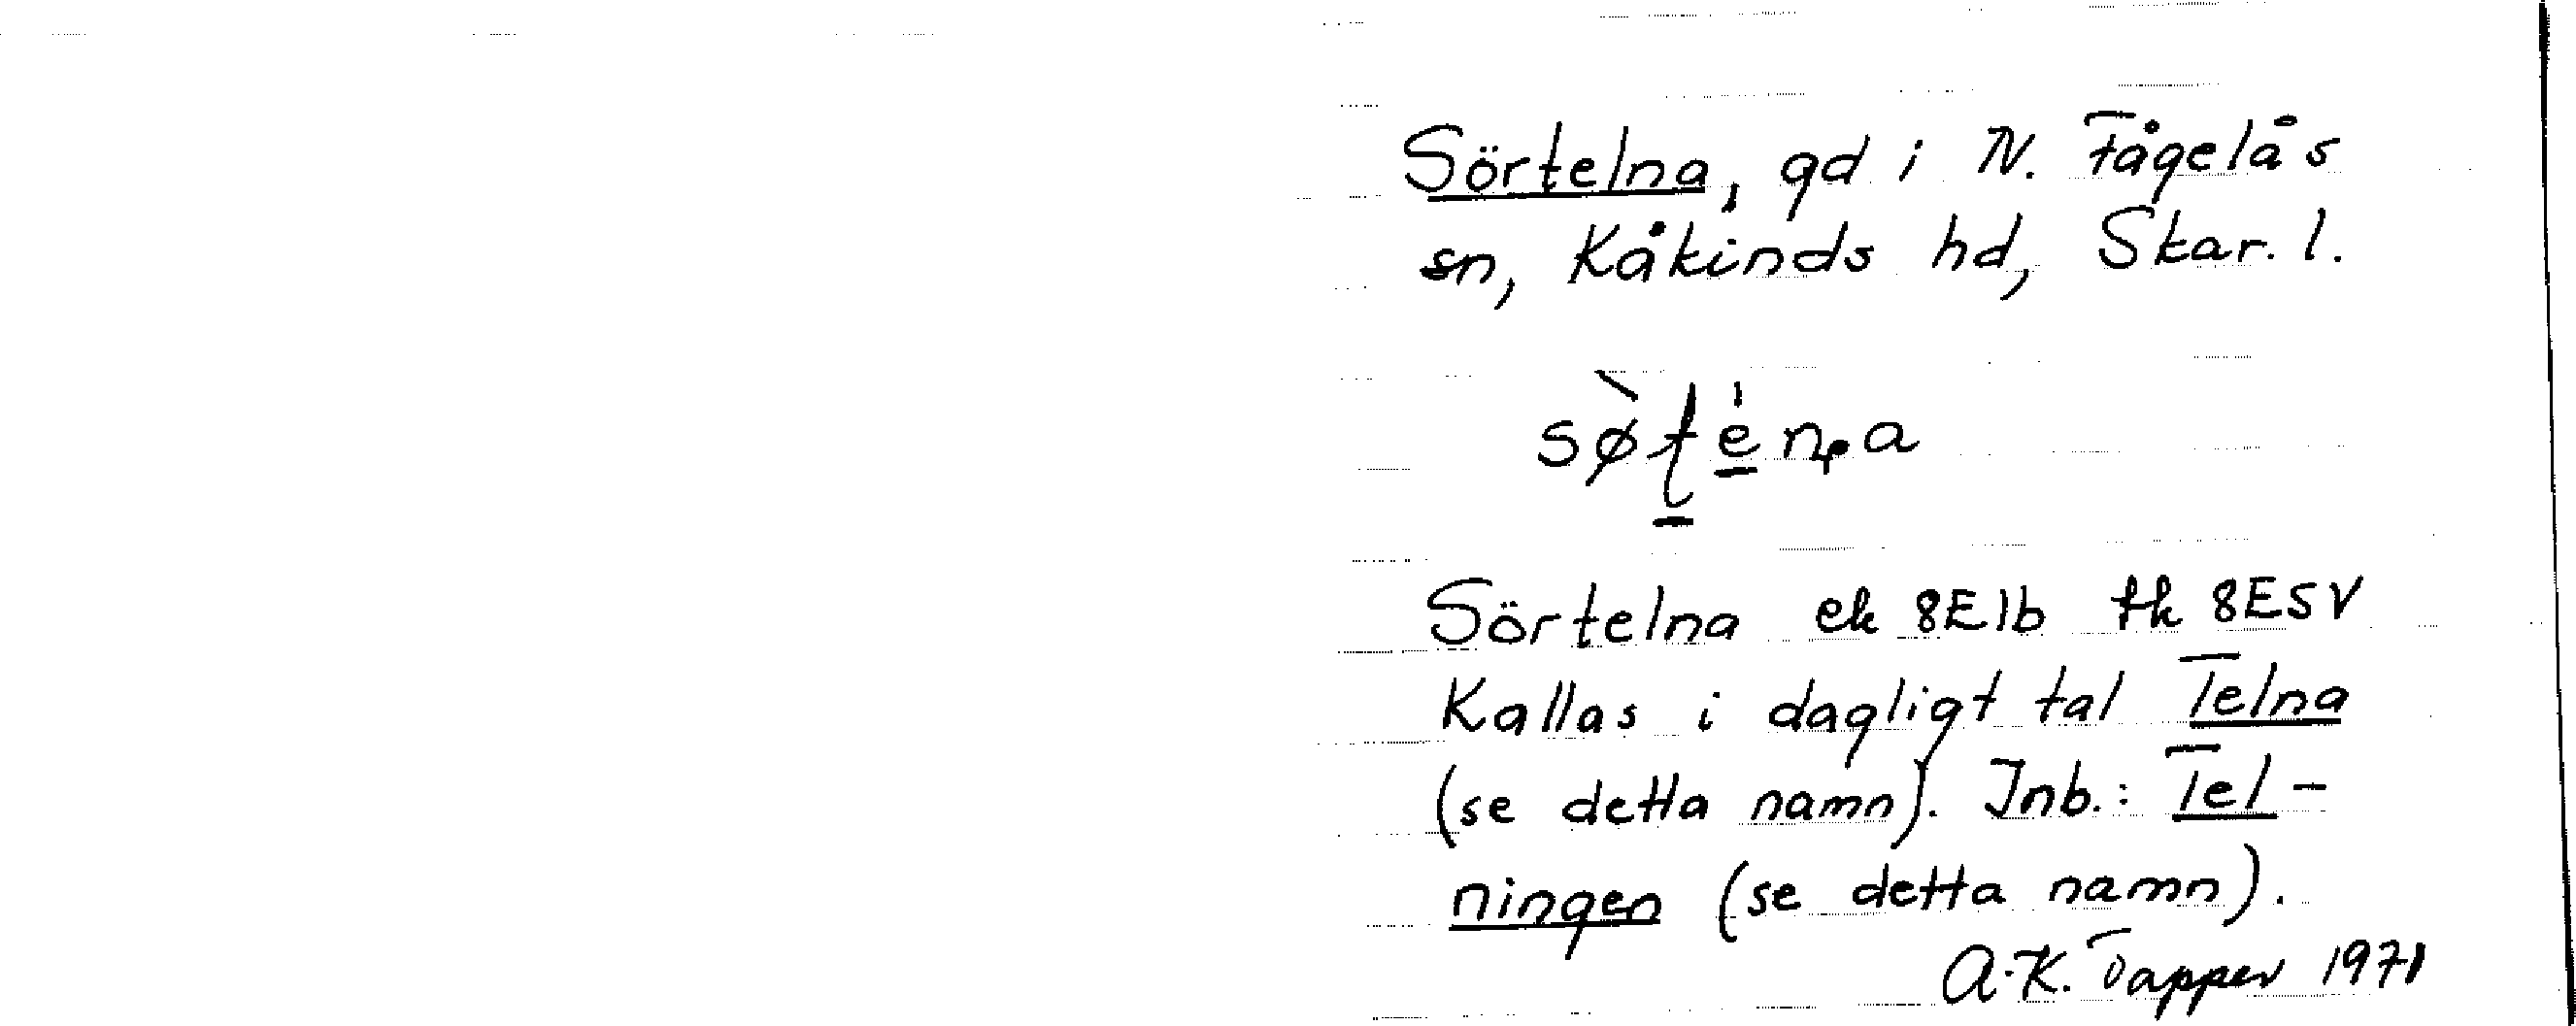 Sörtelna, gd i N. Fågelås
sn, Kåkinds hd, Skar. l.
Sörtelna ek 8E1b tk 8E5V
Kallas i dagligt tal Telna
(se detta namn). Inb.: Tel-
ningen (se detta namn).
A-K. Tapper 1971